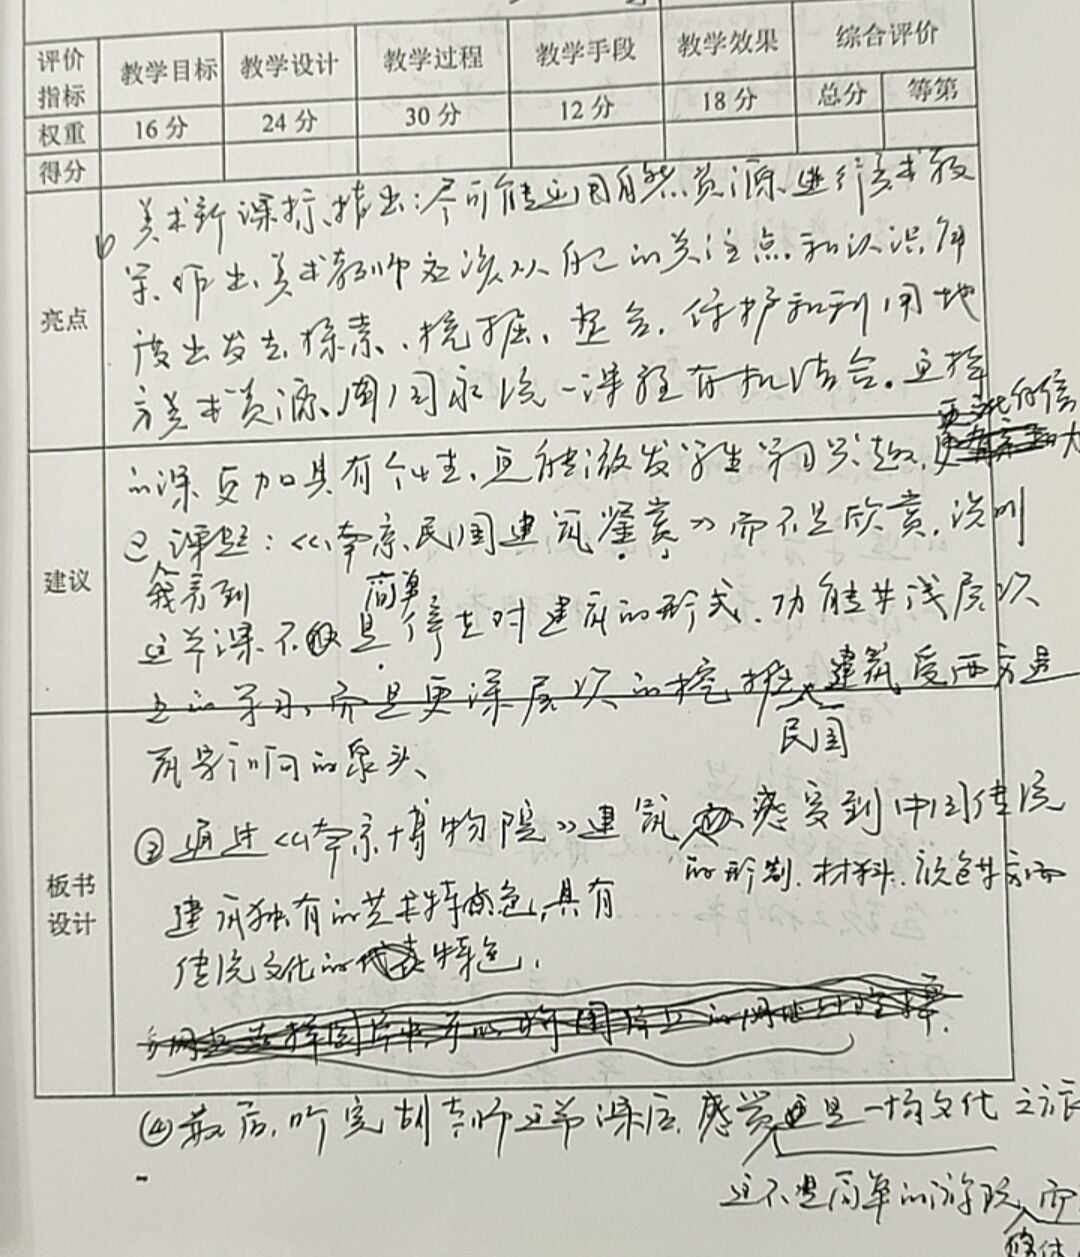 评价指标 教学目标 教学设计 教学过程 教学手段 教学效果 综合评价
总分 等第
权重 16分 24分 30分 12分 18分
得分
亮点
美术新课标指出:尽可能运用自然资源进行美术教
学。作出美术教师应该从自己的关注点和认识角
度出发去探索、挖掘、整合、保护和利用地
方美术资源,与国家统一课程有机结合。选择
建议
的课更加具有个性,且能激发学生学习兴趣,更
② 课题:《南京民国建筑鉴赏》而不是欣赏,说明
我看到 简单
这节课不仅是停在对建筑的形式、功能等浅层次
上的学习,而是更深层次的挖掘 建筑受西方
民国
的泉头、
板书设计
③ 通过《南京博物院》建筑 感受到中国传统
的形制、材料、设色等方面
建筑独有的艺术特色,具有
传统文化的特色,
④ 最后,听完胡老师这节课后,感觉是一场文化之旅
这不是简单的游玩,而